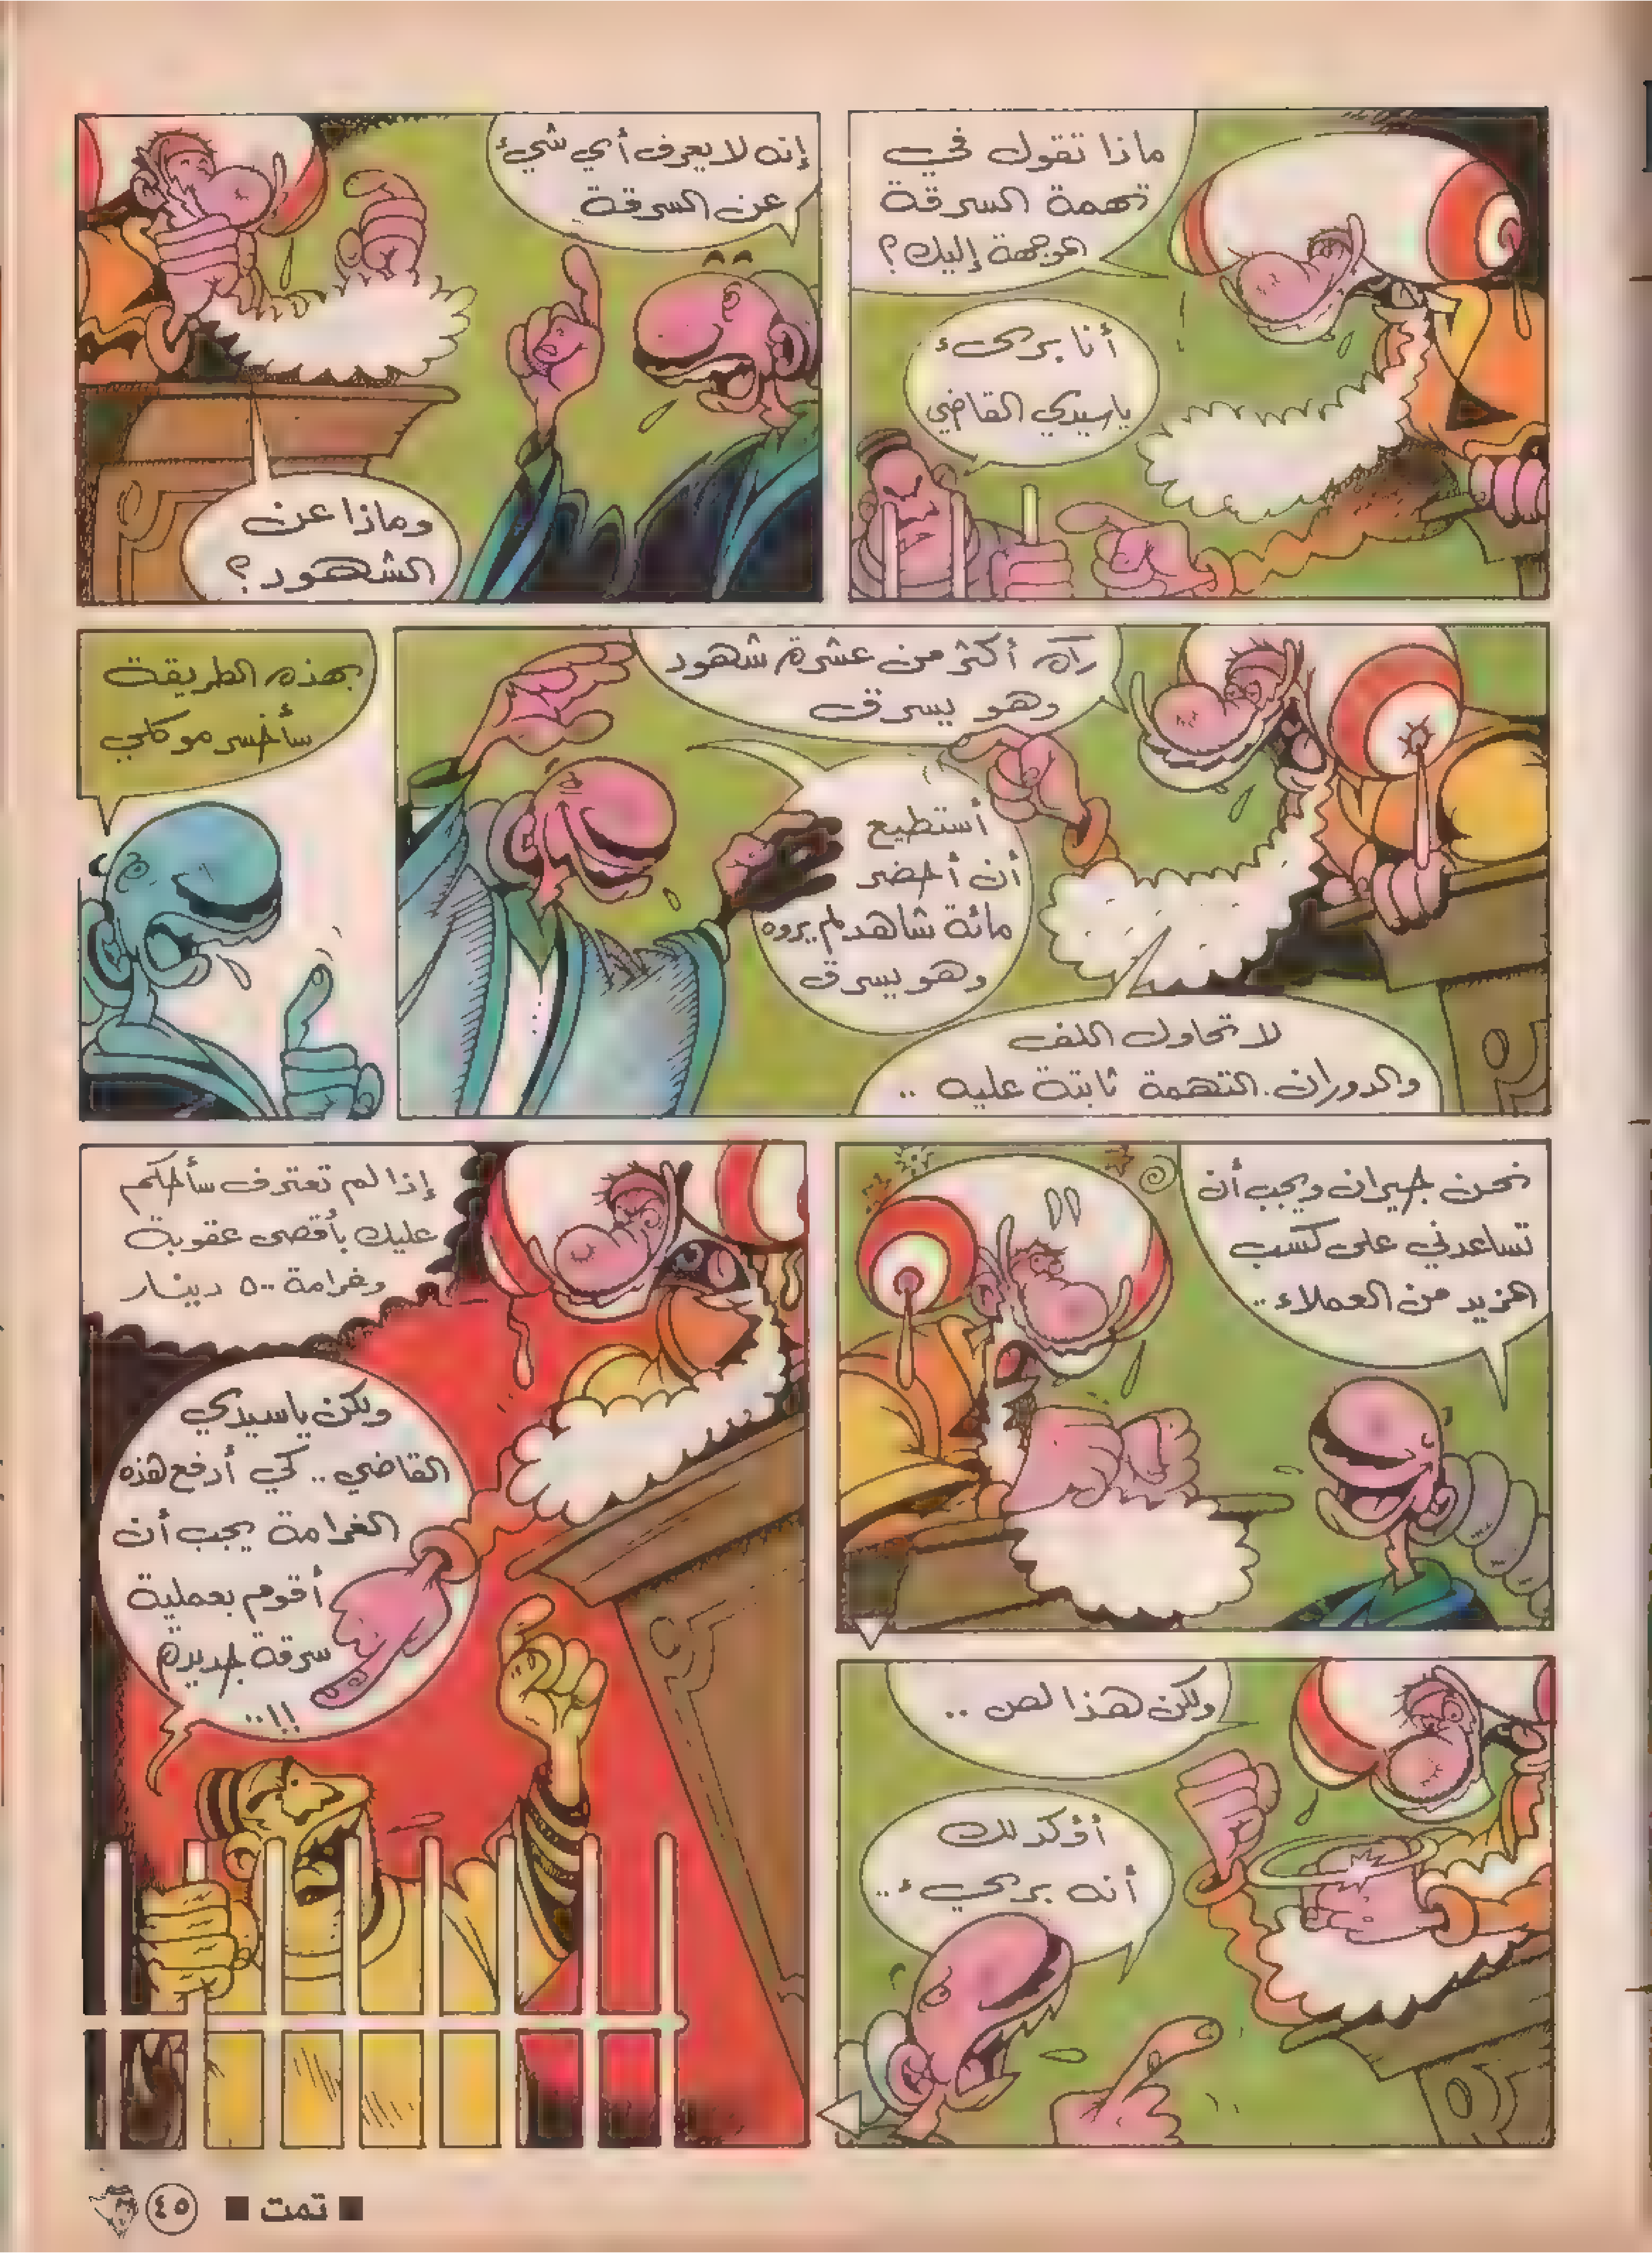 ماذا تقول في
تهمة السرقة
الموجهة إليك؟
أنا بريء
يا سيدي القاضي
إنه لا يعرف أي شيء
عن السرقة
وماذا عن
الشهود؟
رآه أكثر من عشرة شهود
وهو يسرق
أستطيع
أن أحضر
مائة شاهد لم يروه
وهو يسرق
لا تحاول اللف
والدوران. التهمة ثابتة عليه ..
بهذه الطريقة
سأخسر موكلي
نحن جيران ويجب أن
تساعدني على كسب
المزيد من العملاء ..
ولكن هذا لص ..
أؤكد لك
أنه بريء ..
إذا لم تعترف سأحكم
عليك بأقصى عقوبة
وغرامة ٥٠٠ دينار
ولكن يا سيدي
القاضي .. كي أدفع هذه
الغرامة يجب أن
أقوم بعملية
سرقة جديدة
..!!
■ تمت ■
٤٥